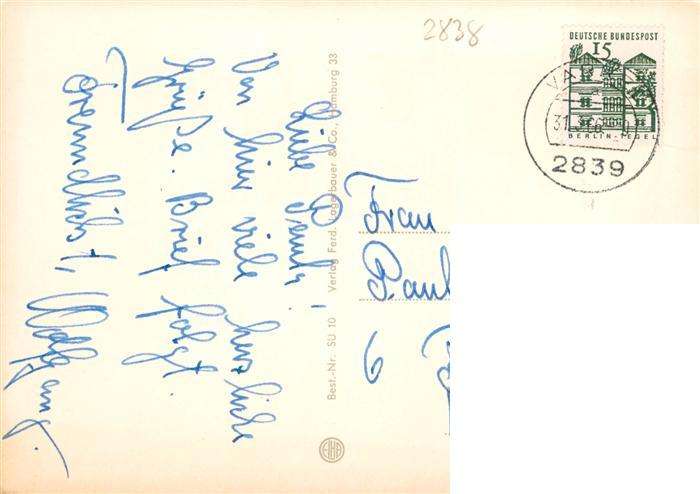 2838
DEUTSCHE BUNDESPOST
15
BERLIN-TEGEL
VA
31.
66
2839
Liebe
Von hier viele herzliche
Grüße. Brief folgt.
Freundlichst,
Wolfgang.
Best.-Nr. SU 10 Verlag Ferd. Lagerbauer & Co., Hamburg 33
Frau
Paul
6